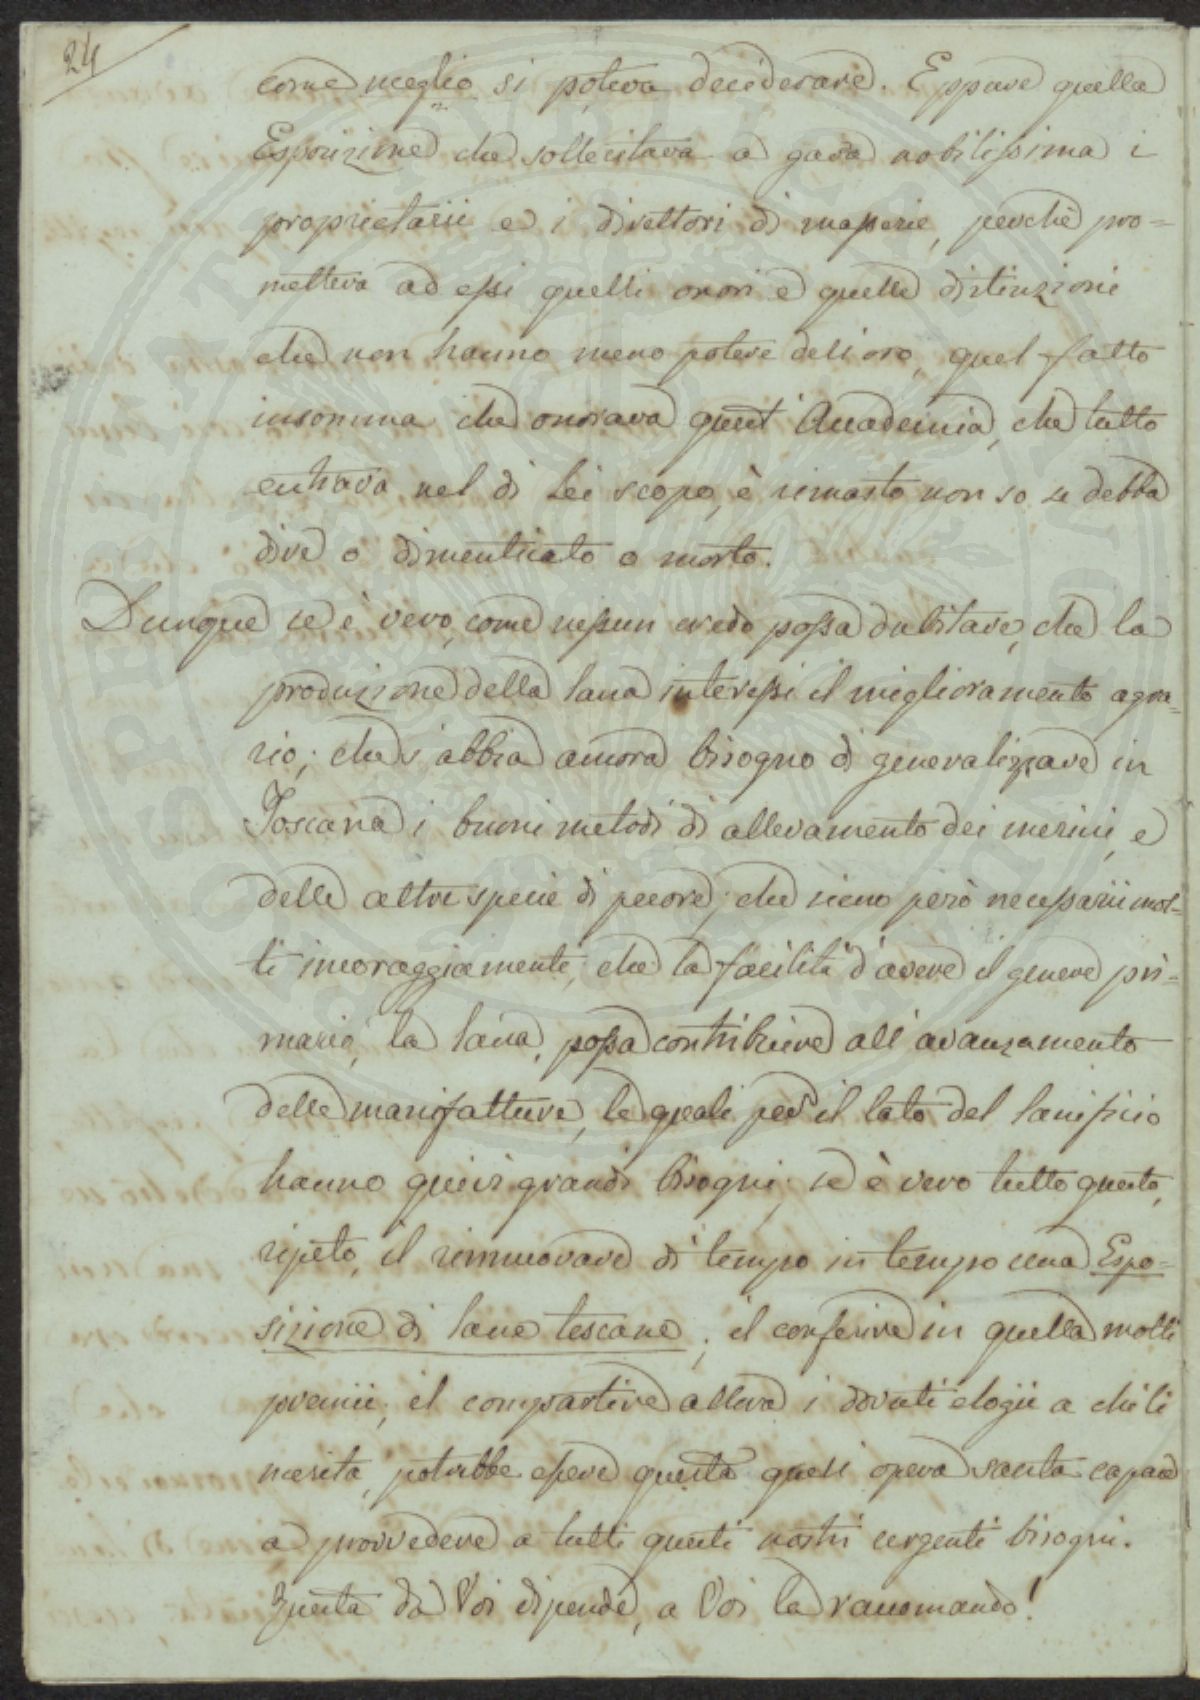 24
come meglio si poteva deciderare. Eppure quella
Esposizione che sollecitava a gara nobilissima i
proprietarii e i direttori di masserie, perchè pro=
metteva ad essi quelli onori e quelle distinzioni
che non hanno meno potere dell'oro, quel fatto
insomma che onorava quest'Accademia, che tutto
entrava nel di Lei scopo, è rimasto non so se debba
dire o dimenticato o morto.
Dunque se è vero, come nessun credo possa dubitare, che la
produzione della lana interessi il miglioramento agra=
rio; che s'abbia ancora bisogno di generalizzare in
Toscana i buoni metodi di allevamento dei merini, e
delle altre specie di pecore; che sieno però necessarii mol=
ti incoraggiamenti; che la facilità d'avere il genere pri=
mario, la lana, possa contribuire all'avanzamento
delle manifatture, le quali per il lato del lanificio
hanno quivi grandi bisogni; se è vero tutto questo,
ripeto, il rinnuovare di tempo in tempo una Espo=
sizione di lane toscane; il conferire in quella molti
premii; il compartire allora i dovuti elogii a chi li
merita, potrebbe essere questa quasi opera santa capace
a provvedere a tutti questi nostri urgenti bisogni.
Questa da Voi dipende, a Voi la raccomando!
PROSPERITATI PUBLICAE AUGENDAE